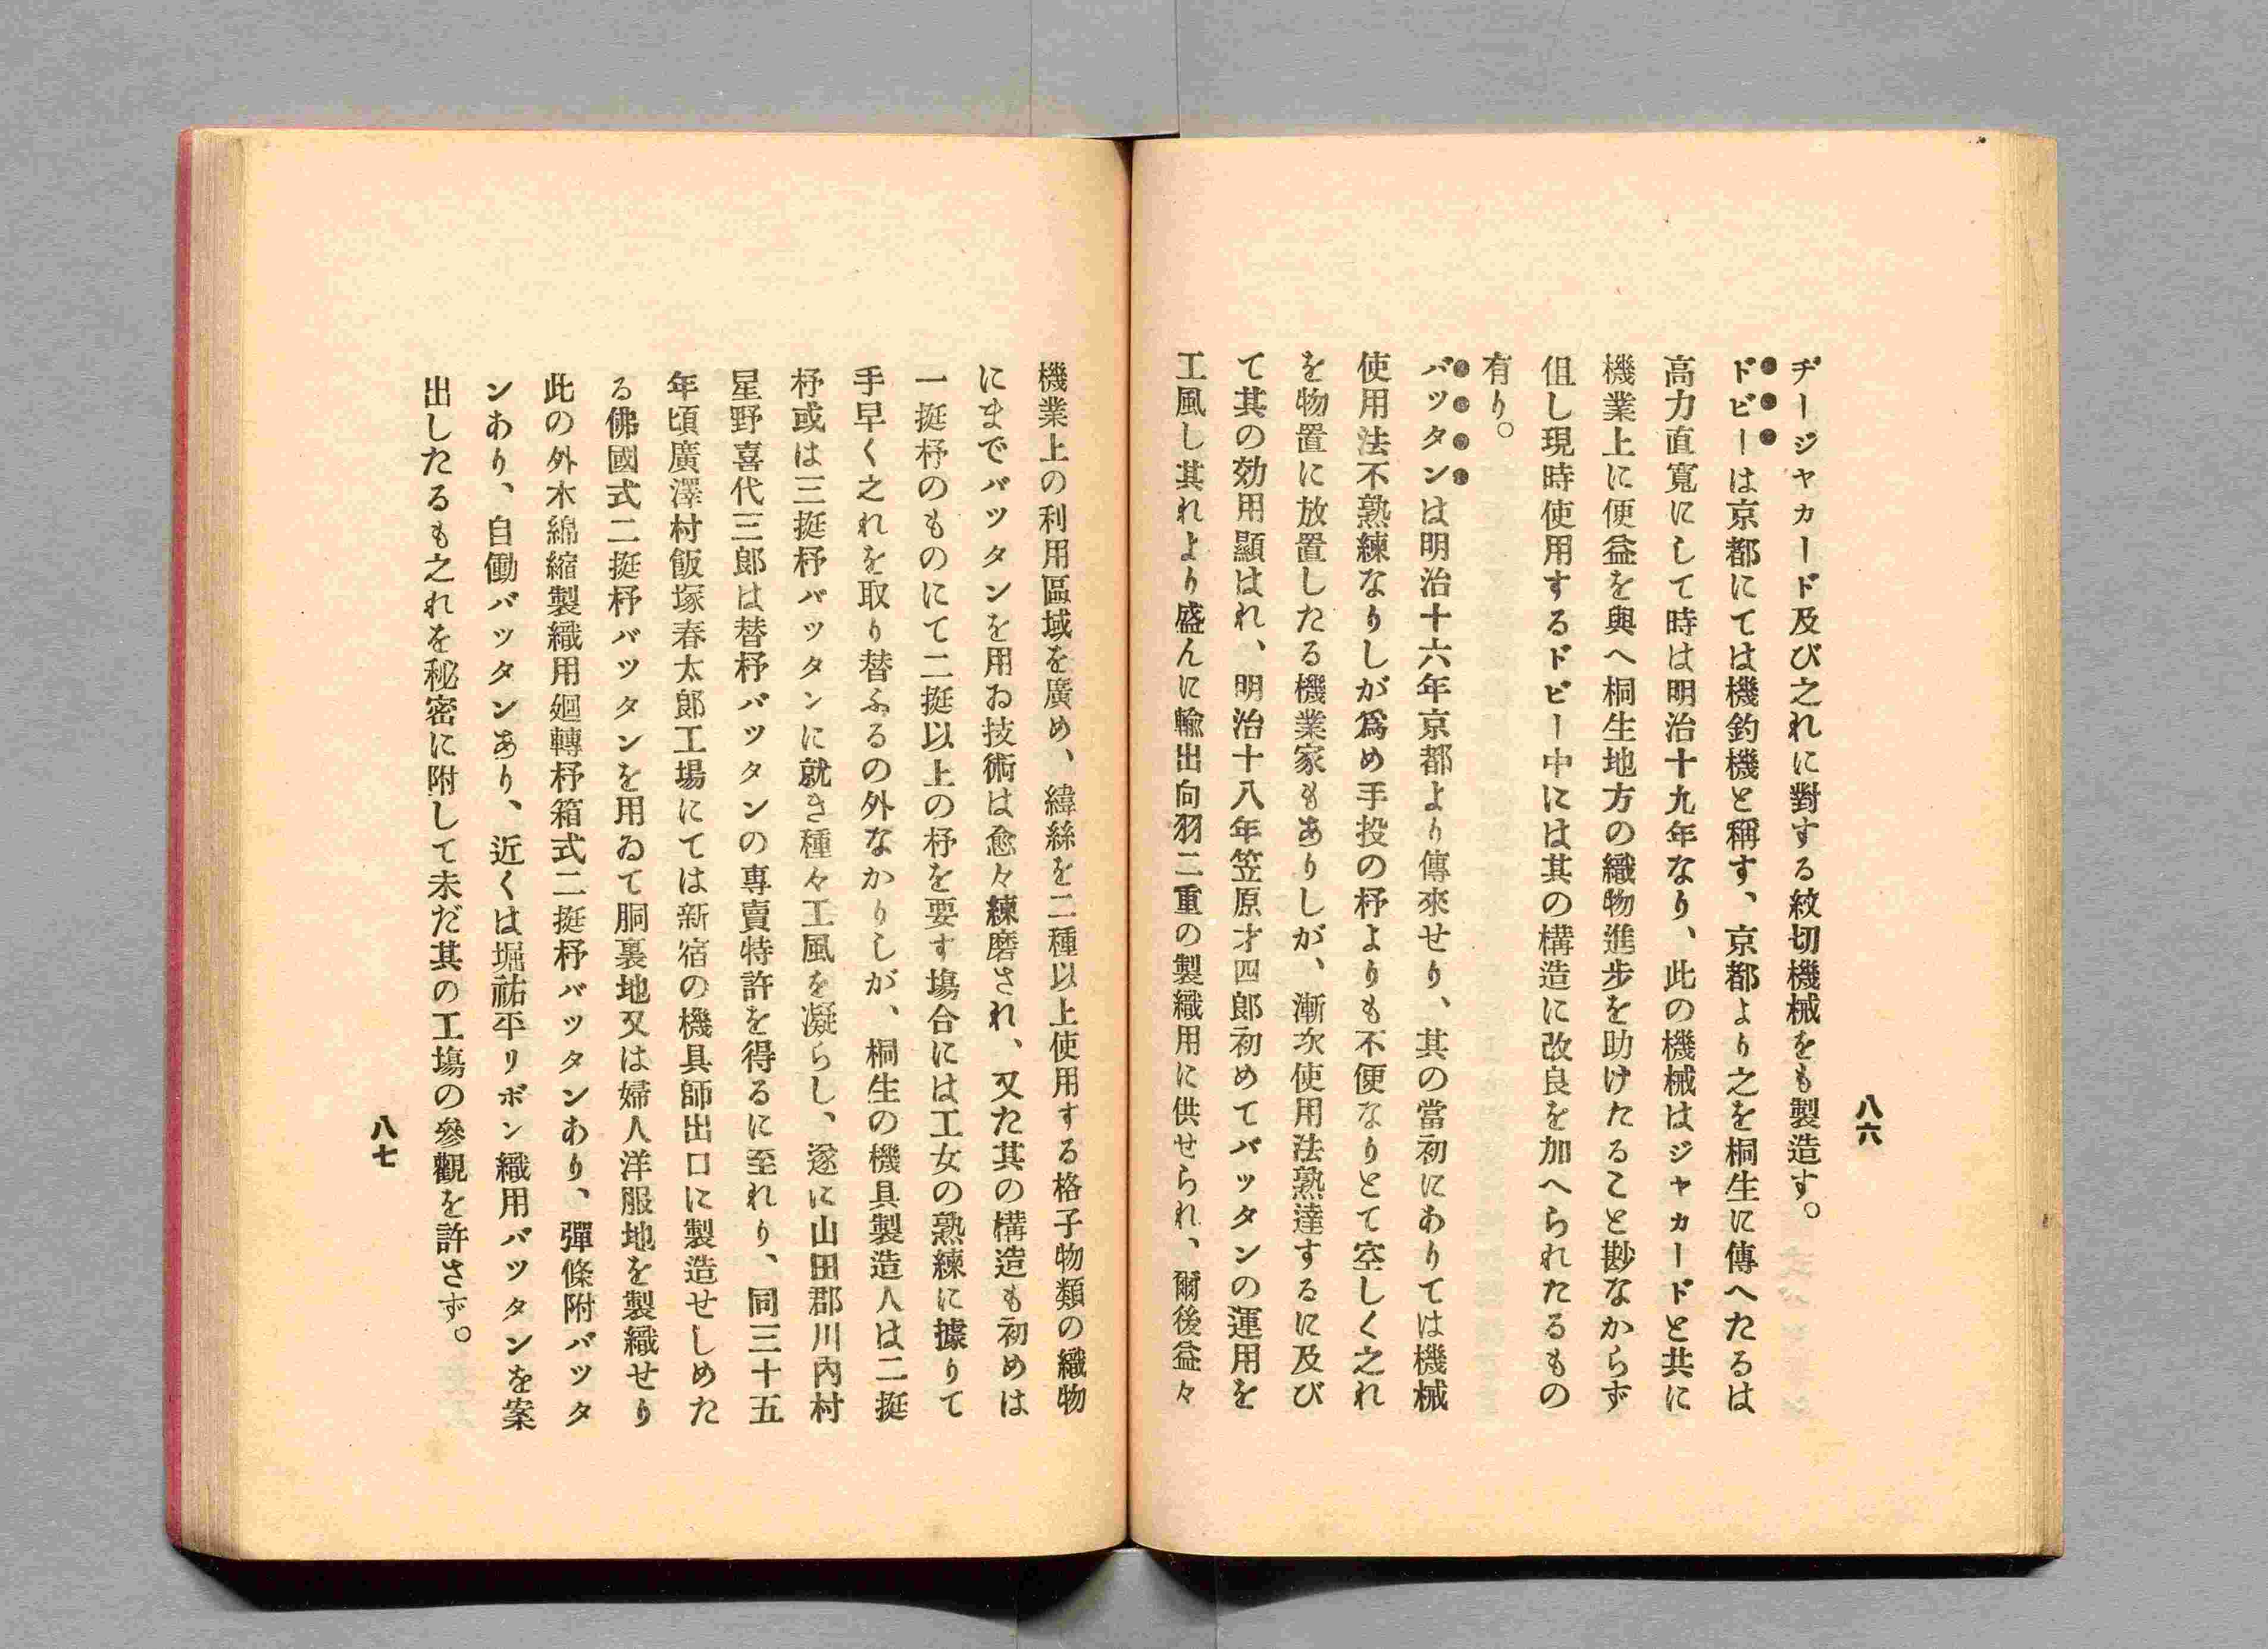 八六
ヂージヤカード及び之れに對する紋切機械をも製造す。
ドビーは京都にては機釣機と稱す、京都より之を桐生に傳へたるは
高力直寬にして時は明治十九年なり、此の機械はジャカードと共に
機業上に便益を與へ桐生地方の織物進步を助けたること尠なからず
伹し現時使用するドビー中には其の構造に改良を加へられたるもの
有り。
バッタンは明治十六年京都より傳來せり、其の當初にありては機械
使用法不熟練なりしが爲め手投の杼よりも不便なりとて空しく之れ
を物置に放置したる機業家もありしが、漸次使用法熟達するに及び
て其の効用顯はれ、明治十八年笠原才四郎初めてバッタンの運用を
工風し其れより盛んに輸出向羽二重の製織用に供せられ、爾後益々
機業上の利用區域を廣め、緯絲を二種以上使用する格子物類の織物
にまでバツタンを用ゐ技術は愈々練磨され、又た其の構造も初めは
一挺杼のものにて二挺以上の杼を要す塲合には工女の熟練に據りて
手早く之れを取り替ふるの外なかりしが、桐生の機具製造人は二挺
杼或は三挺杼バッタンに就き種々工風を凝らし、遂に山田郡川內村
星野喜代三郎は替杼バッタンの專賣特許を得るに至れり、同三十五
年頃廣澤村飯塚春太郎工場にては新宿の機具師出口に製造せしめた
る佛國式二挺杼バツタンを用ゐて胴裏地又は婦人洋服地を製織せり
此の外木綿縮製織用廻轉杼箱式二挺杼バッタンあり、彈條附バッタ
ンあり、自働バッタンあり、近くは堀祐平リボン織用バッタンを案
出したるも之れを秘密に附して未だ其の工塲の參觀を許さず。
八七